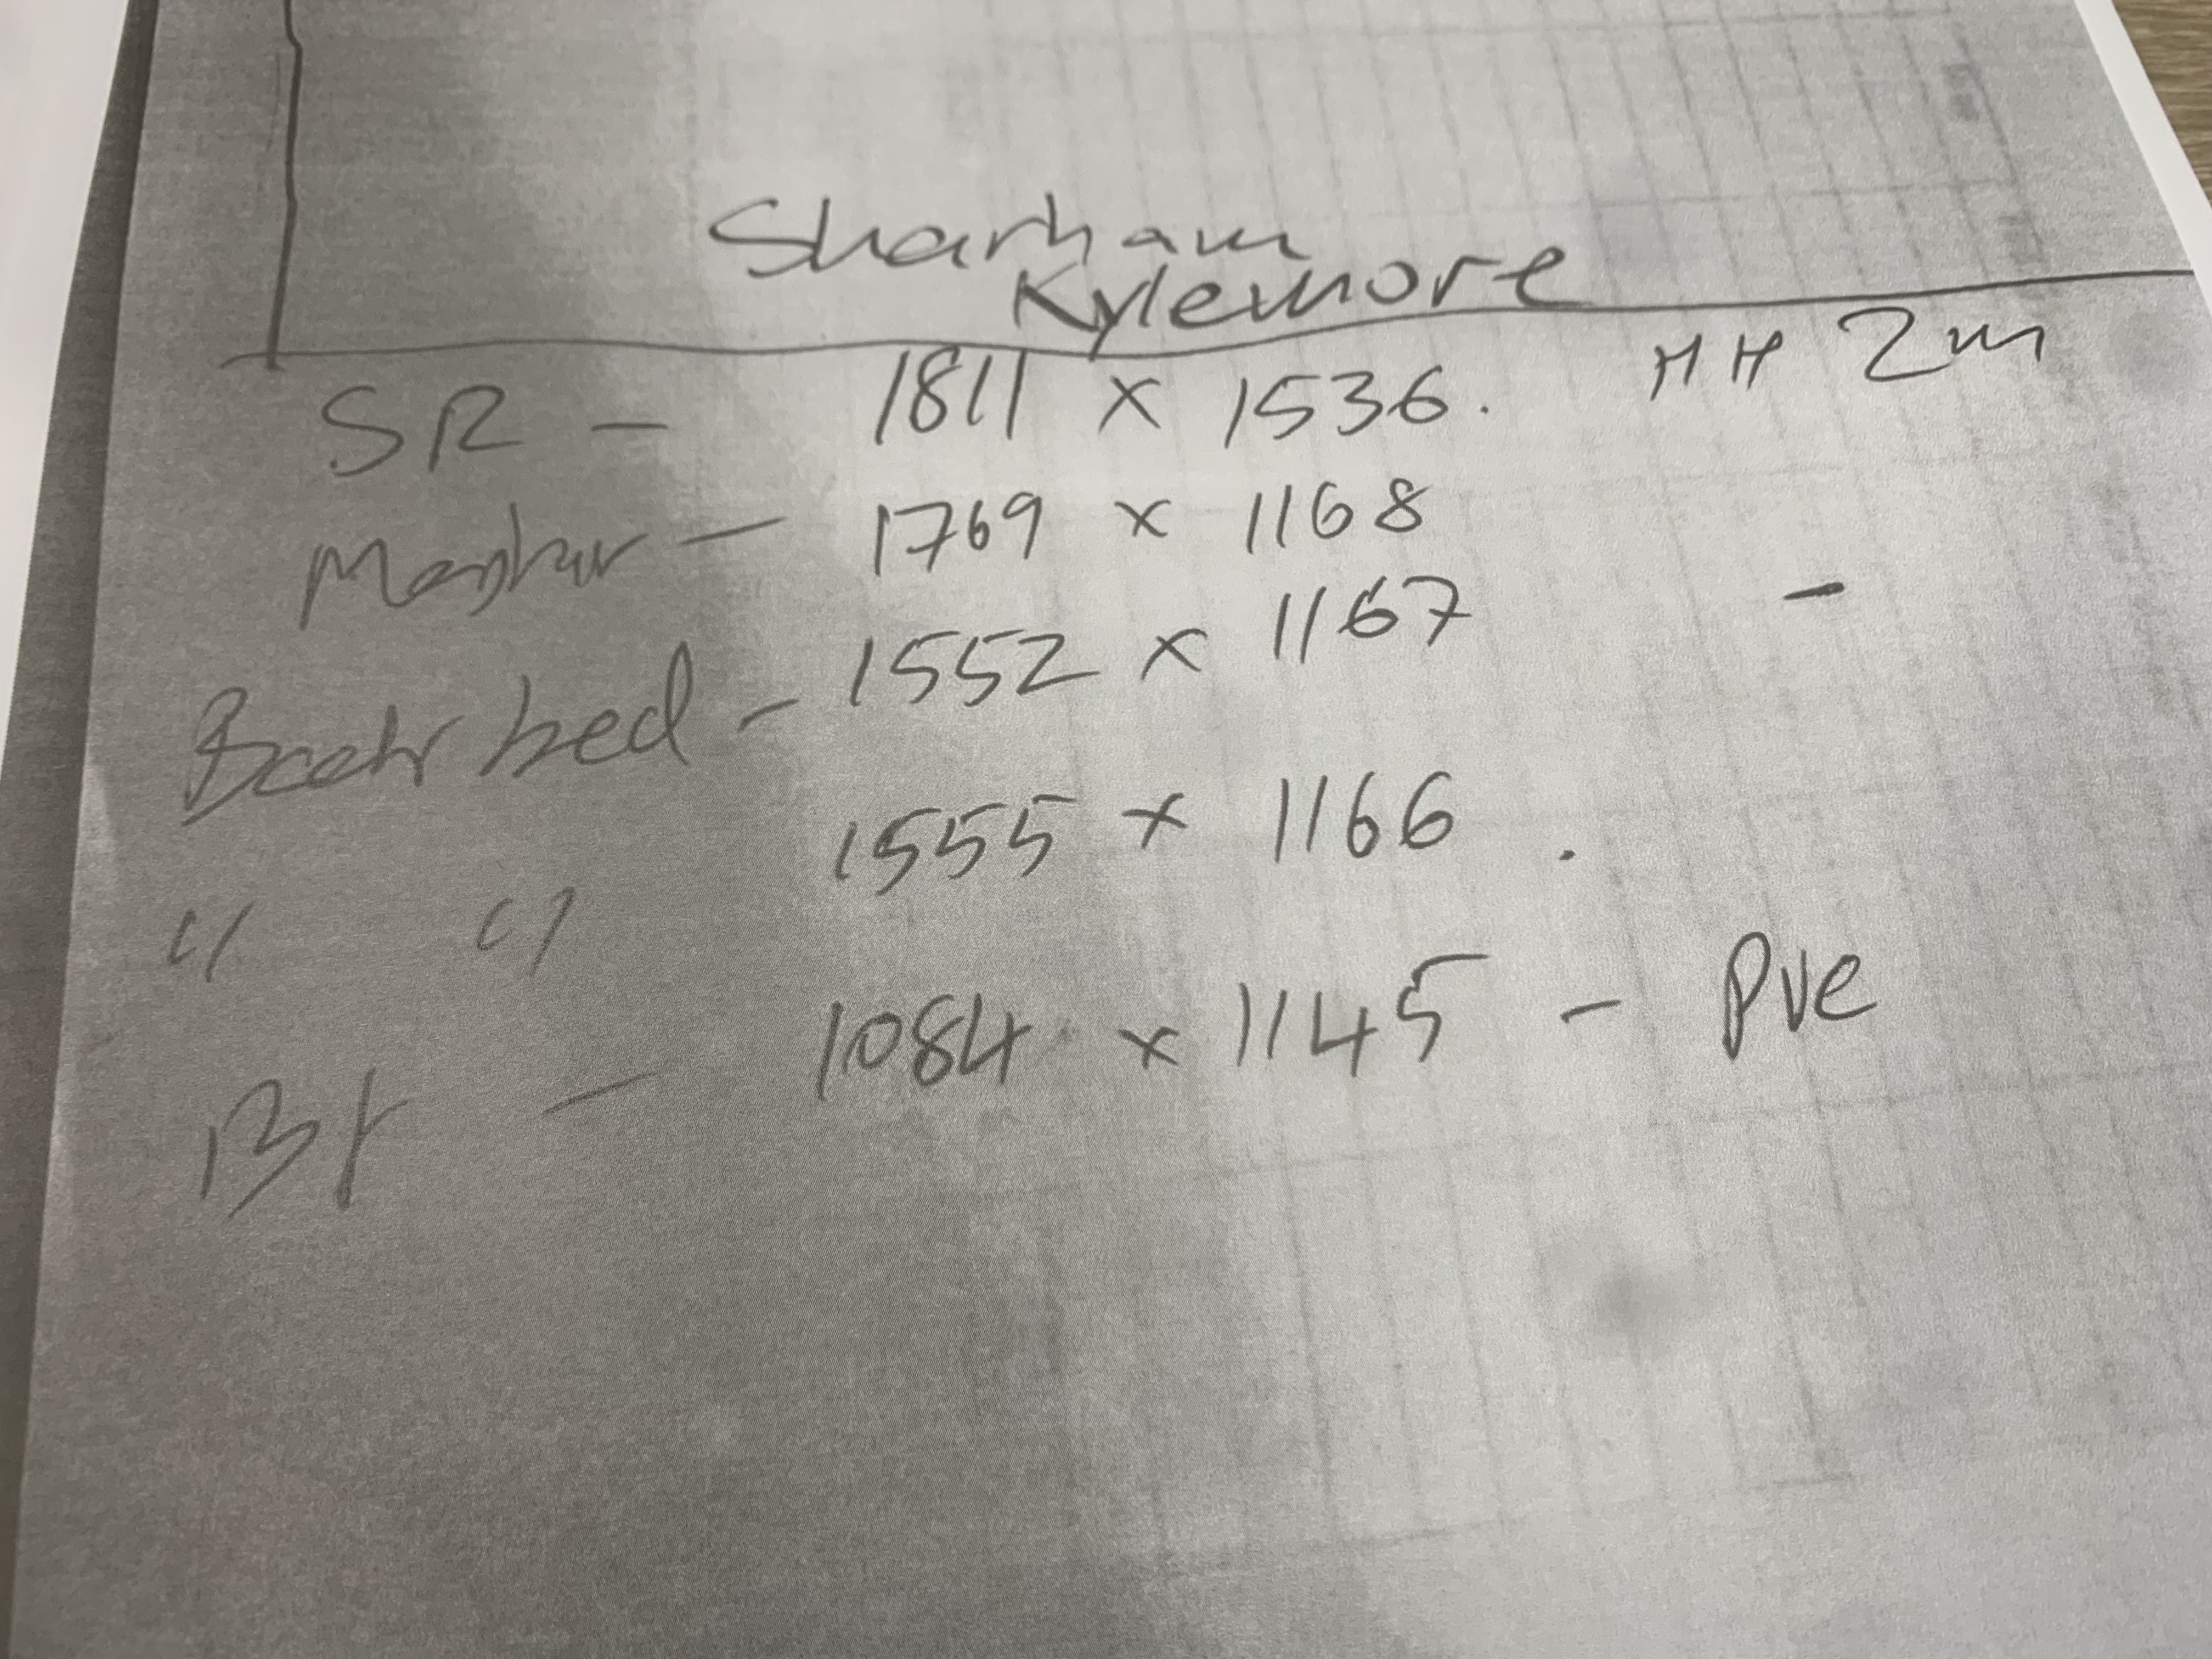 Sharham
Kylemore
SR - 1811 x 1536. HH 2m
Master - 1769 x 1168
Back bed - 1552 x 1167 -
" " 1555 x 1166 .
- 1084 x 1145 - PVC